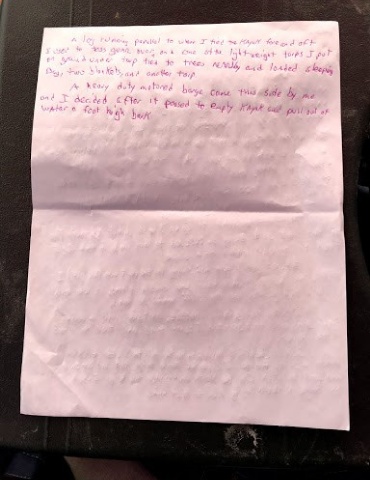 A log running parallel to where I tied the kayak fore and aft
I used to toss gear over and one of the lightweight tarps I put
on ground under tarp tied to trees nearby and loaded sleeping
bags two blankets, and another tarp
A heavy duty motored barge came this side by me
and I decided after it passed to empty kayak and pull out of
water a foot high bank